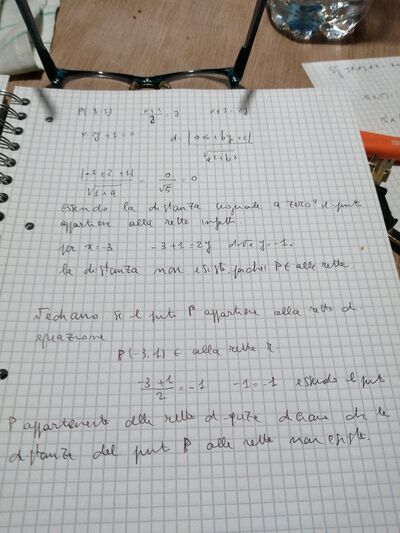 P(-3 -1) x+1/2 = y x+1 = 2y
x-2y+1=0 d= |ax+by+c|/√a²+b²
|-3+2+1|/√1+4 = 0/√5 = 0
Essendo la distanza uguale a zero il punto
appartiene alla retta infatti
per x=-3 -3+1=2y dove y=-1.
la distanza non esiste perché P∈ alla retta
Vediamo se il punto P appartiene alla retta di
equazione
P(-3.1) ∈ alla retta r
-3+1/2 = -1 -1=-1 essendo il punto
P appartenente alla retta diciamo che la
distanza del punto P alla retta non esiste.